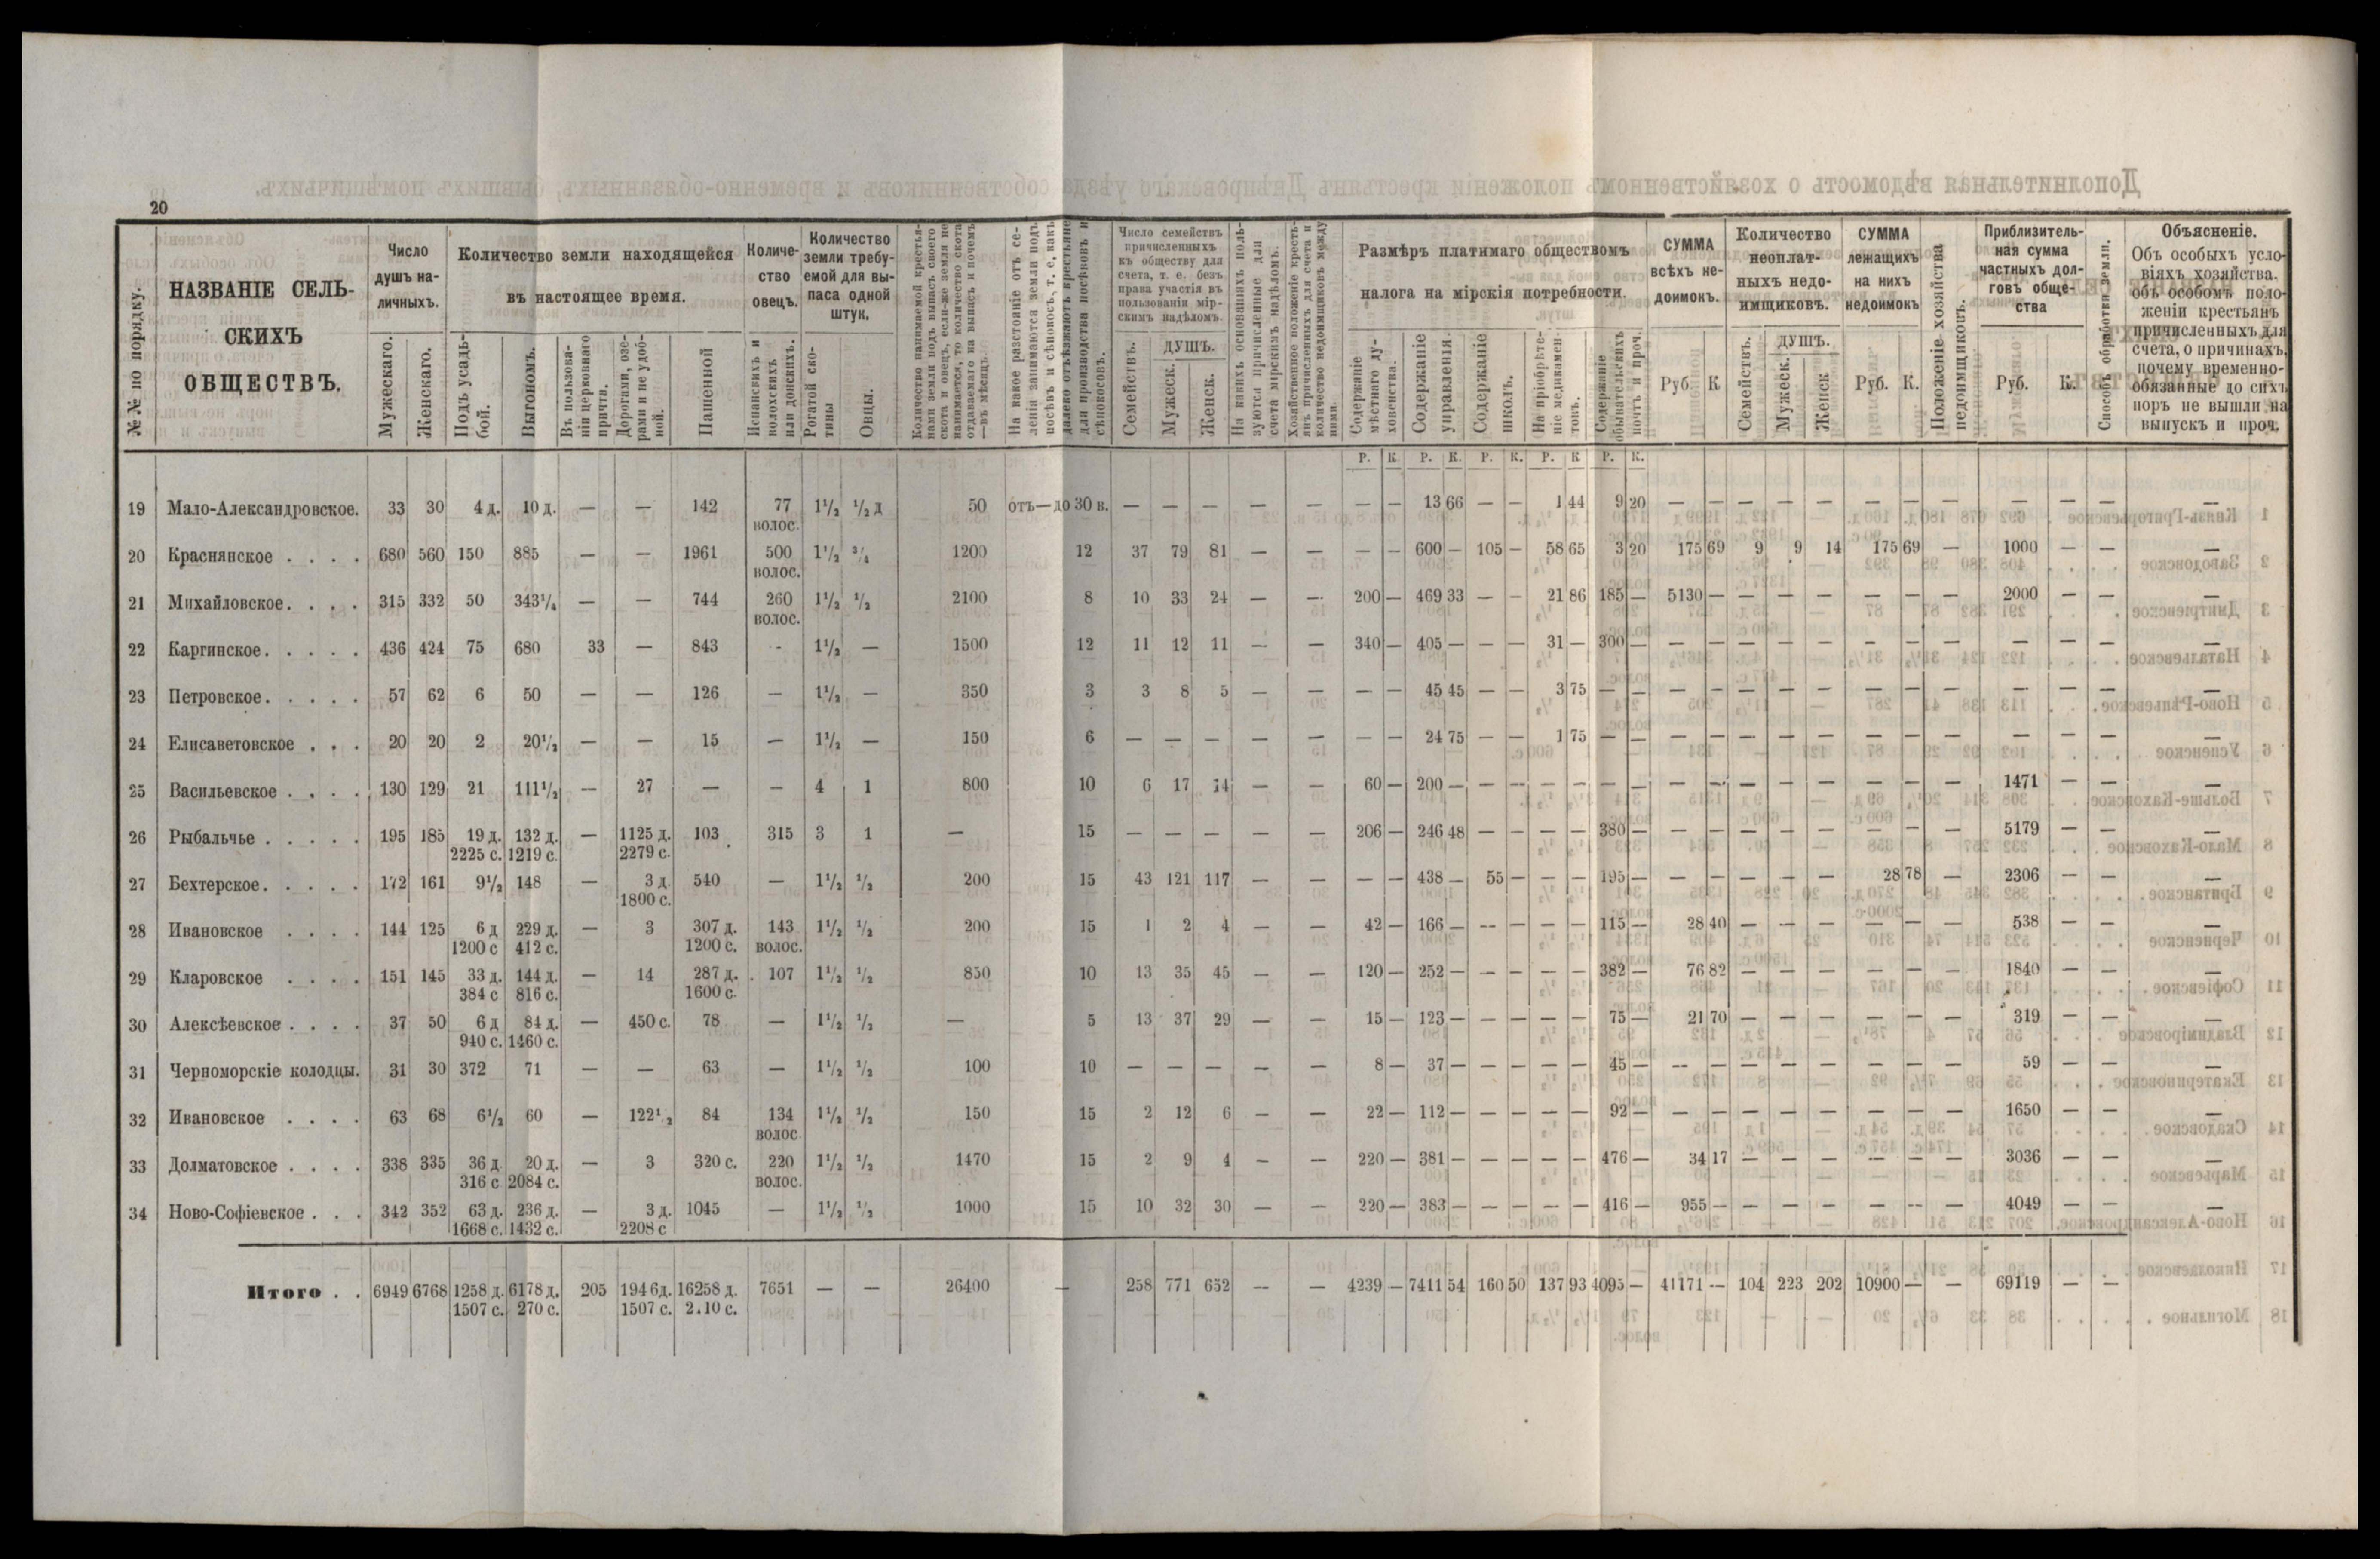 20
№№ по порядку.
НАЗВАНІЕ СЕЛЬ-
СКИХЪ
ОБЩЕСТВЪ.
Число
душъ на-
личныхъ.
Мужескаго.
Женскаго.
Количество земли находящейся
въ настоящее время.
Подъ усадь-
бой.
Выгономъ.
Въ пользова-
ніи церковнаго
причта.
Дорогами, озе-
рами и не удоб-
ной.
Пашенной
Количе-
ство
овецъ.
Испанскихъ и
волохскихъ
или донскихъ.
Количество
земли требу-
емой для вы-
паса одной
штук.
Рогатой ско-
тины
Овцы.
Количество нанимаемой крестья-
нами земли подъ выпасъ своего
скота и овецъ, если-же земля не
нанимается, то количество скота
отдаваемаго на выпасъ и почемъ
—въ мѣсяцъ.
На какое разстояніе отъ се-
леній занимаются земли подъ
посѣвъ и сѣнокосъ, т. е, какъ
далеко отъѣзжаютъ крестьяне
для производства посѣвовъ и
сѣнокосовъ.
Число семействъ
причисленныхъ
къ обществу для
счета, т. е. безъ
права участія въ
пользованіи мір-
скимъ надѣломъ.
Семействъ.
ДУШЪ.
Мужеск.
Женск.
На какихъ основаніяхъ поль-
зуются причисленные для
счета мірскимъ надѣломъ.
Хозяйственное положеніе кресть-
янъ причисленныхъ для счета и
количество недоимщиковъ между
ними.
Размѣръ платимаго обществомъ
налога на мірскія потребности.
Содержаніе
мѣстнаго ду-
ховенства.
Содержаніе
управленія.
Содержаніе
школъ.
На пріобрѣте-
ніе медикамен-
товъ.
Содержаніе
обывательскихъ
почтъ и проч.
СУММА
всѣхъ не-
доимокъ.
Руб. К
Количество
неоплат-
ныхъ недо-
имщиковъ.
Семействъ.
ДУШЪ.
Мужеск.
Женск
СУММА
лежащихъ
на нихъ
недоимокъ
Руб. К.
Положеніе хозяйства
недоимщиковъ.
Приблизитель-
ная сумма
частныхъ дол-
говъ обще-
ства
Руб. К.
Способъ обработки земли.
Объясненіе.
Объ особыхъ усло-
віяхъ хозяйства.
объ особомъ поло-
женіи крестьянъ
причисленныхъ для
счета, о причинахъ,
почему временно-
обязанные до сихъ
поръ не вышли на
выпускъ и проч.
Р. К Р. К. Р. К. Р. К Р. К.
19 Мало-Александровское. 33 30 4 д. 10 д. — — 142 77 1½ ½ д 50 отъ—до 30 в. — — — — — — — 13 66 — — 1 44 9 20 — — — — — — — — — — — —
волос.
20 Краснянское . . . . 680 560 150 885 — — 1961 500 1½ ¾ 1200 12 37 79 81 — — — — 600 — 105 — 58 65 3 20 175 69 9 9 14 175 69 — 1000 — — —
волос.
21 Михайловское. . . . 315 332 50 343¼ — — 744 260 1½ ½ 2100 8 10 33 24 — — 200 — 469 33 — — 21 86 185 — 5130 — — — — — — — 2000 — — —
волос.
22 Каргинское. . . . . 436 424 75 680 33 — 843 - 1½ — 1500 12 11 12 11 — — 340 — 405 — — — 31 — 300 — — — — — — — — — — — — —
23 Петровское. . . . . 57 62 6 50 — — 126 — 1½ — 350 3 3 8 5 — — — — 45 45 — — 3 75 — — — — — — — — — — — — — —
24 Елисаветовское . . . 20 20 2 20½ — — 15 — 1½ — 150 6 — — — — — — — 24 75 — — 1 75 — — — — — — — — — — — — — —
25 Васильевское . . . . 130 129 21 111½ — 27 — — 4 1 800 10 6 17 14 — — 60 — 200 — — — — — — — — — — — — — — — 1471 — — —
26 Рыбальчье . . . . . 195 185 19 д. 132 д. — 1125 д. 103 315 3 1 — 15 — — — — — 206 — 246 48 — — — — 380 — — — — — — — — — 5179 — — —
2225 с. 1219 с. 2279 с.
27 Бехтерское. . . . . 172 161 9½ 148 — 3 д. 540 — 1½ ½ 200 15 43 121 117 — — — — 438 — 55 — — — 195 — — — — — — 28 78 — 2306 — — —
1800 с.
28 Ивановское . . . . 144 125 6 д 229 д. — 3 307 д. 143 1½ ½ 200 15 1 2 4 — — 42 — 166 — -- — — — 115 — 28 40 — — — — — — 538 — — —
1200 с 412 с. 1200 с. волос.
29 Кларовское . . . . 151 145 33 д. 144 д. — 14 287 д. 107 1½ ½ 850 10 13 35 45 — — 120 — 252 — — — — — 382 — 76 82 — — — — — — 1840 — — —
384 с 816 с. 1600 с.
30 Алексѣевское . . . . 37 50 6 д 84 д. — 450 с. 78 — 1½ ½ — 5 13 37 29 — — 15 — 123 — — — — — 75 — 21 70 — — — — — — 319 — — —
940 с. 1460 с.
31 Черноморскіе колодцы. 31 30 372 71 — — 63 — 1½ ½ 100 10 — — — — — 8 — 37 — — — — — 45 — -- — — — — — — — 59 — — —
32 Ивановское . . . . 63 68 6½ 60 — 122½ 84 134 1½ ½ 150 15 2 12 6 — — 22 — 112 — — — — — 92 — — — — — — — — — 1650 — — —
волос
33 Долматовское . . . . 338 335 36 д. 20 д. — 3 320 с. 220 1½ ½ 1470 15 2 9 4 — — 220 — 381 — — — — — 476 — 34 17 — — — — — — 3036 — — —
316 с 2084 с. волос.
34 Ново-Софіевское . . . 342 352 63 д. 236 д. — 3 д. 1045 — 1½ ½ 1000 15 10 32 30 — — 220 — 383 — — — — — 416 — 955 — — — — — -- — 4049 — — —
1668 с. 1432 с. 2208 с
Итого . . 6949 6768 1258 д. 6178 д. 205 1946д. 16258 д. 7651 — — 26400 — 258 771 652 — — 4239 — 7411 54 160 50 137 93 4095 — 41171 -- 104 223 202 10900 — — 69119 — —
1507 с. 270 с. 1507 с.